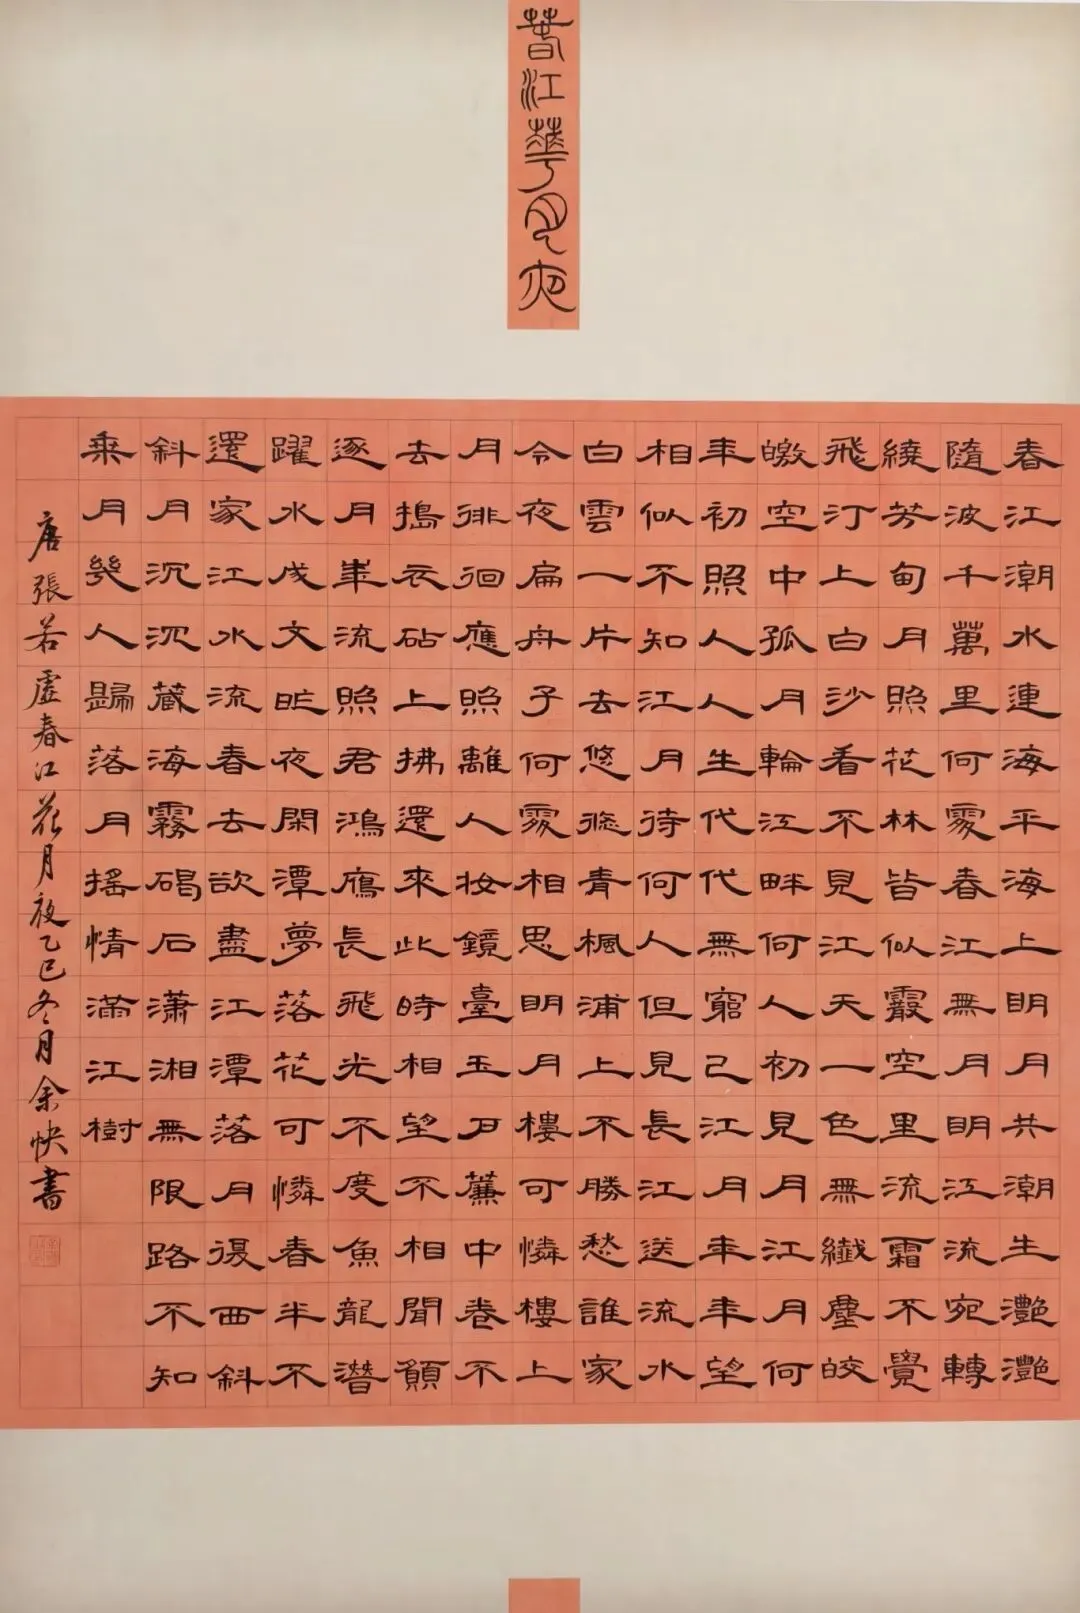 春江華月夜
春江潮水連海平海上明月共潮生灩灩
隨波千萬里何處春江無月明江流宛轉
繞芳甸月照花林皆似霰空里流霜不覺
飛汀上白沙看不見江天一色無纖塵皎
皦空中孤月輪江畔何人初見月江月何
年初照人人生代代無窮已江月年年望
相似不知江月待何人但見長江送流水
白雲一片去悠悠青楓浦上不勝愁誰家
今夜扁舟子何處相思明月樓可憐樓上
月徘徊應照離人妝鏡臺玉戶簾中卷不
去搗衣砧上拂還來此時相望不相聞願
逐月華流照君鴻雁長飛光不度魚龍潛
躍水成文昨夜閑潭夢落花可憐春半不
還家江水流春去欲盡江潭落月復西斜
斜月沉沉藏海霧碣石瀟湘無限路不知
乘月幾人歸落月搖情滿江樹
唐張若虛春江花月夜乙巳冬月余快書